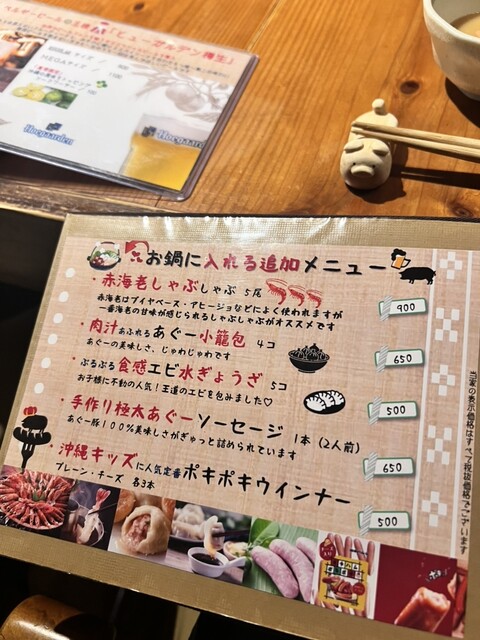 ベルギービールの王様「ヒューガルデン樽生」
MEGAサイズ
Hoegaarden
Hoegaarden
お鍋に入れる追加メニュー
・赤海老しゃぶしゃぶ 5尾
900
赤海老はブイヤベース・アヒージョなどによく使われますが
一番海老の甘味が感じられるしゃぶしゃぶがオススメです
・肉汁あふれるあぐー小籠包 4コ
650
あぐーの美味しさ、じゅわじゅわです
・ぷるぷる食感エビ水ぎょうざ 5コ
500
お子様に不動の人気!王道のエビを包みました♡
・手作り極太あぐーソーセージ 1本(2人前)
650
あぐー豚100%美味しさがぎゅっと詰められています
・沖縄キッズに人気定番ポキポキウインナー
500
プレーン・チーズ 各3本
当家の表示価格はすべて税抜価格でございます